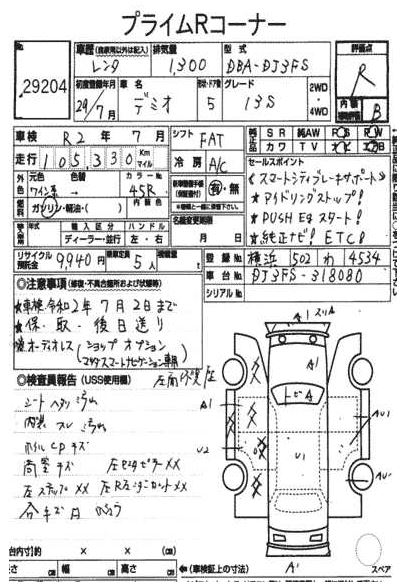 プライムRコーナー
No.
29204
車歴(自家用以外は記入)
レンタ
排気量
1,300
型式
DBA-DJ3FS
評価点
R
初度登録年月
29/7月
車名
デミオ
形状・ドア数
5
グレード
13S
2WD
・
4WD
内装
B
車検 R2年7月
シフト
FAT
純正品
SR 純AW PS PW
カワ TV ナビ エアB
走行 105,330 Km
マイル
冷房
A/C
セールスポイント
《スマートシティブレーキサポート》
★アイドリングストップ!
★PUSH Eg スタート!
★純正ナビ! ETC!
外色
元色
ワイン系
色替
カラーNo.
45R
燃料
ガソリン・軽油・( )
内装色
有・無
名義変更期限
月 日
年式
輸入区分
ディーラー・並行
ハンドル
左・右
リサイクル預託金
9,940円
乗車定員
5人
積載量
t
登録No.
横浜 502 わ 4534
車台No.
DJ3FS-318080
シリアルNo.
◎注意事項(修復・不具合箇所および状態等)
★車検令和2年7月2日まで
★保、取、後日送り
★オーディオレス(ショップオプション
マツダスマートナビゲーション専用)
◎検査員報告(USS使用欄)
シートヘタリ汚れ
内装スレ汚れ
ホイルCPキズ
左ステップXX
A1
スリA
A1
トビA
A1
U2
U1
AU1
AU1
A1
(台内寸) 約 × × (cm)
長さ cm 幅 cm 高さ cm
(車検証上の寸法)
スペア